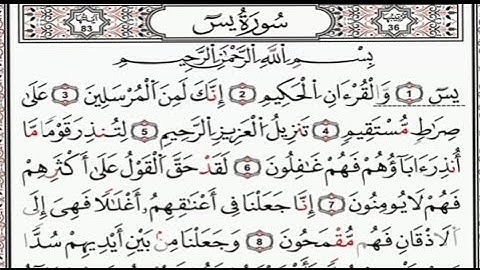 آياتها 83 سُورَةُ يسٓ ترتيبها 36
بِسْمِ اللَّهِ الرَّحْمَٰنِ الرَّحِيمِ
يسٓ ۝1 وَالْقُرْءَانِ الْحَكِيمِ ۝2 إِنَّكَ لَمِنَ الْمُرْسَلِينَ ۝3 عَلَىٰ
صِرَاطٍ مُّسْتَقِيمٍ ۝4 تَنزِيلَ الْعَزِيزِ الرَّحِيمِ ۝5 لِتُنذِرَ قَوْمًا مَّا
أُنذِرَ ءَابَاؤُهُمْ فَهُمْ غَٰفِلُونَ ۝6 لَقَدْ حَقَّ الْقَوْلُ عَلَىٰ أَكْثَرِهِمْ
فَهُمْ لَا يُؤْمِنُونَ ۝7 إِنَّا جَعَلْنَا فِي أَعْنَٰقِهِمْ أَغْلَٰلًا فَهِيَ إِلَى
الْأَذْقَانِ فَهُم مُّقْمَحُونَ ۝8 وَجَعَلْنَا مِنۢ بَيْنِ أَيْدِيهِمْ سَدًّا